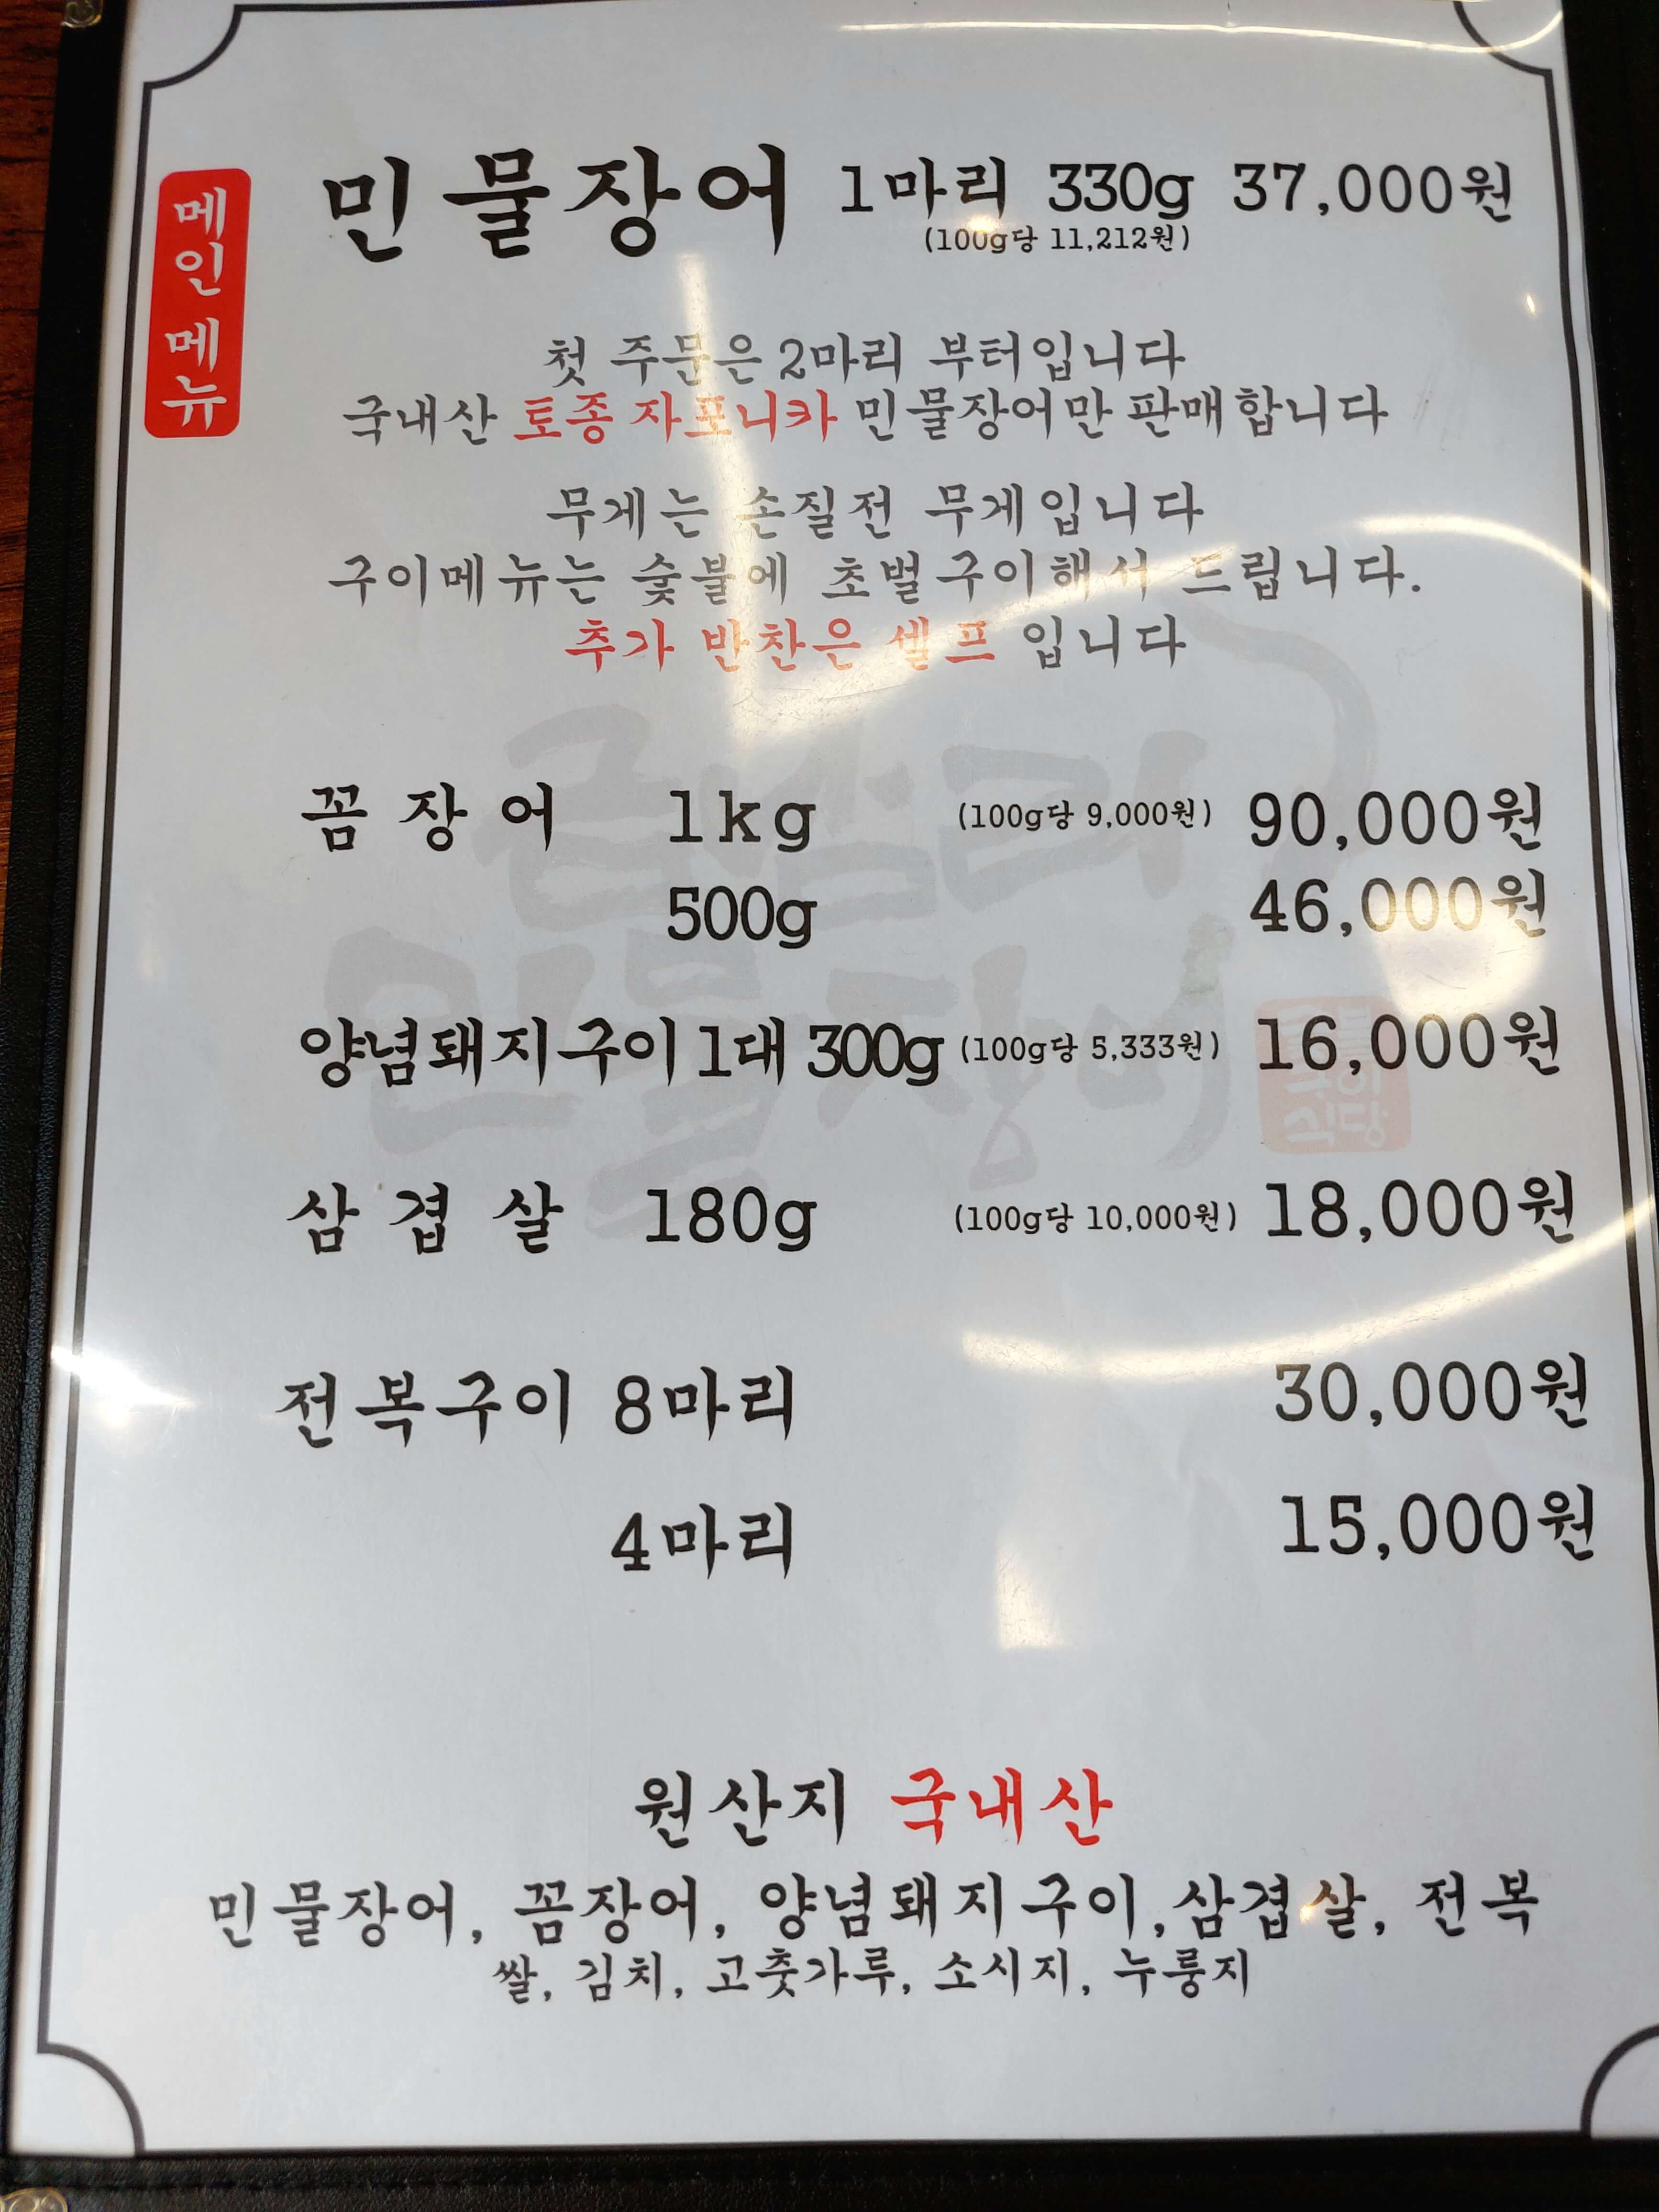 메인 메뉴
민물장어 1마리 330g 37,000원
(100g당 11,212원)
첫 주문은 2마리 부터입니다
국내산 토종 자포니카 민물장어만 판매합니다
무게는 손질전 무게입니다
구이메뉴는 숯불에 초벌구이해서 드립니다.
추가 반찬은 셀프 입니다
꼼장어 1kg (100g당 9,000원) 90,000원
500g 46,000원
양념돼지구이 1대 300g (100g당 5,333원) 16,000원
삼겹살 180g (100g당 10,000원) 18,000원
전복구이 8마리 30,000원
4마리 15,000원
원산지 국내산
민물장어, 꼼장어, 양념돼지구이, 삼겹살, 전복
쌀, 김치, 고춧가루, 소시지, 누룽지